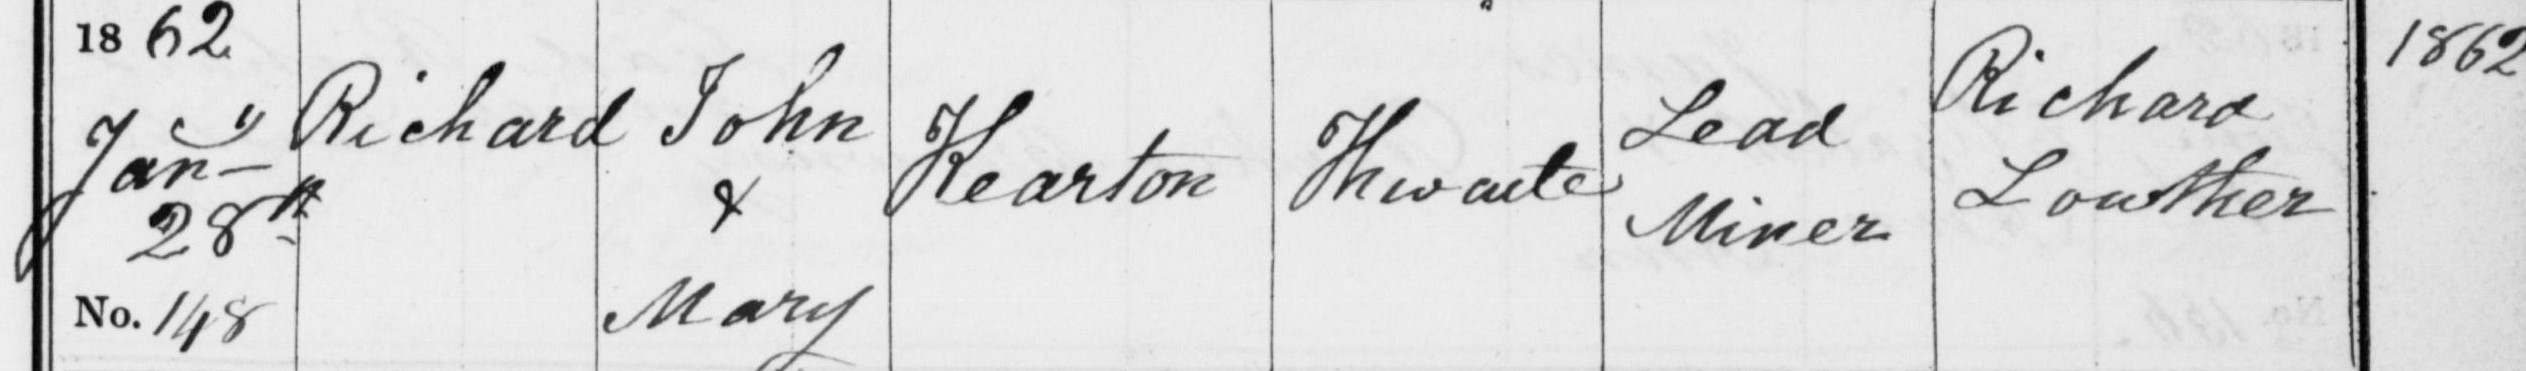 1862
Jany
28th
No. 148
Richard
John
&
Mary
Kearton
Thwaite
Lead
Miner
Richard
Lowther
1862